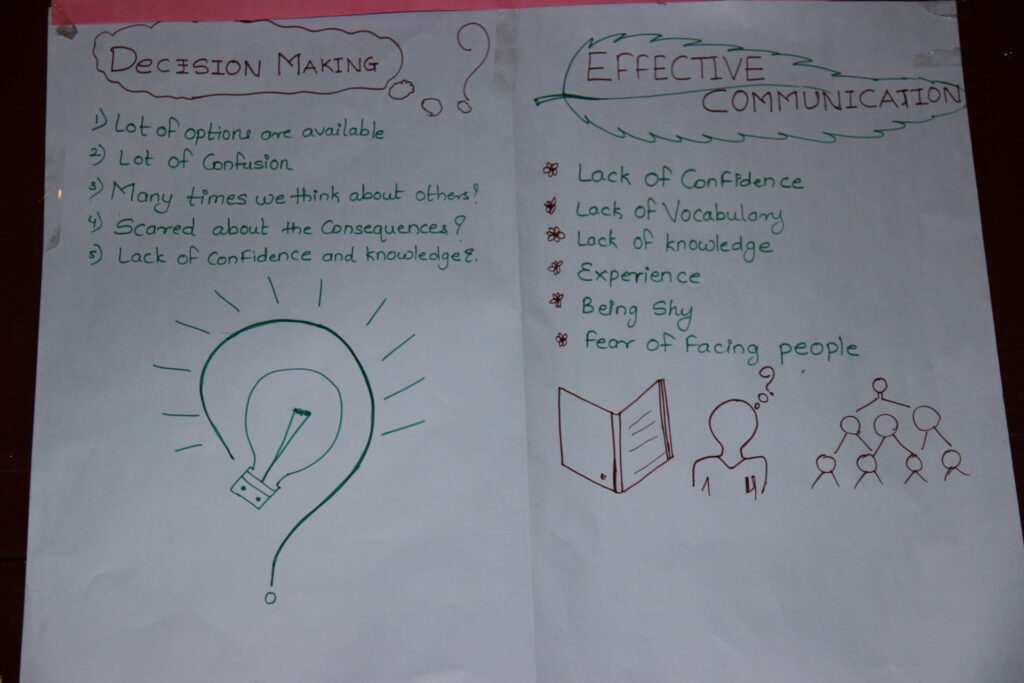 DECISION MAKING ?
1) Lot of options are available
2) Lot of Confusion
3) Many times we think about others?
4) Scared about the Consequences?
5) Lack of Confidence and knowledge?.
EFFECTIVE
COMMUNICATION
Lack of Confidence
Lack of Vocabulary
Lack of knowledge
Experience
Being Shy
Fear of Facing people
?